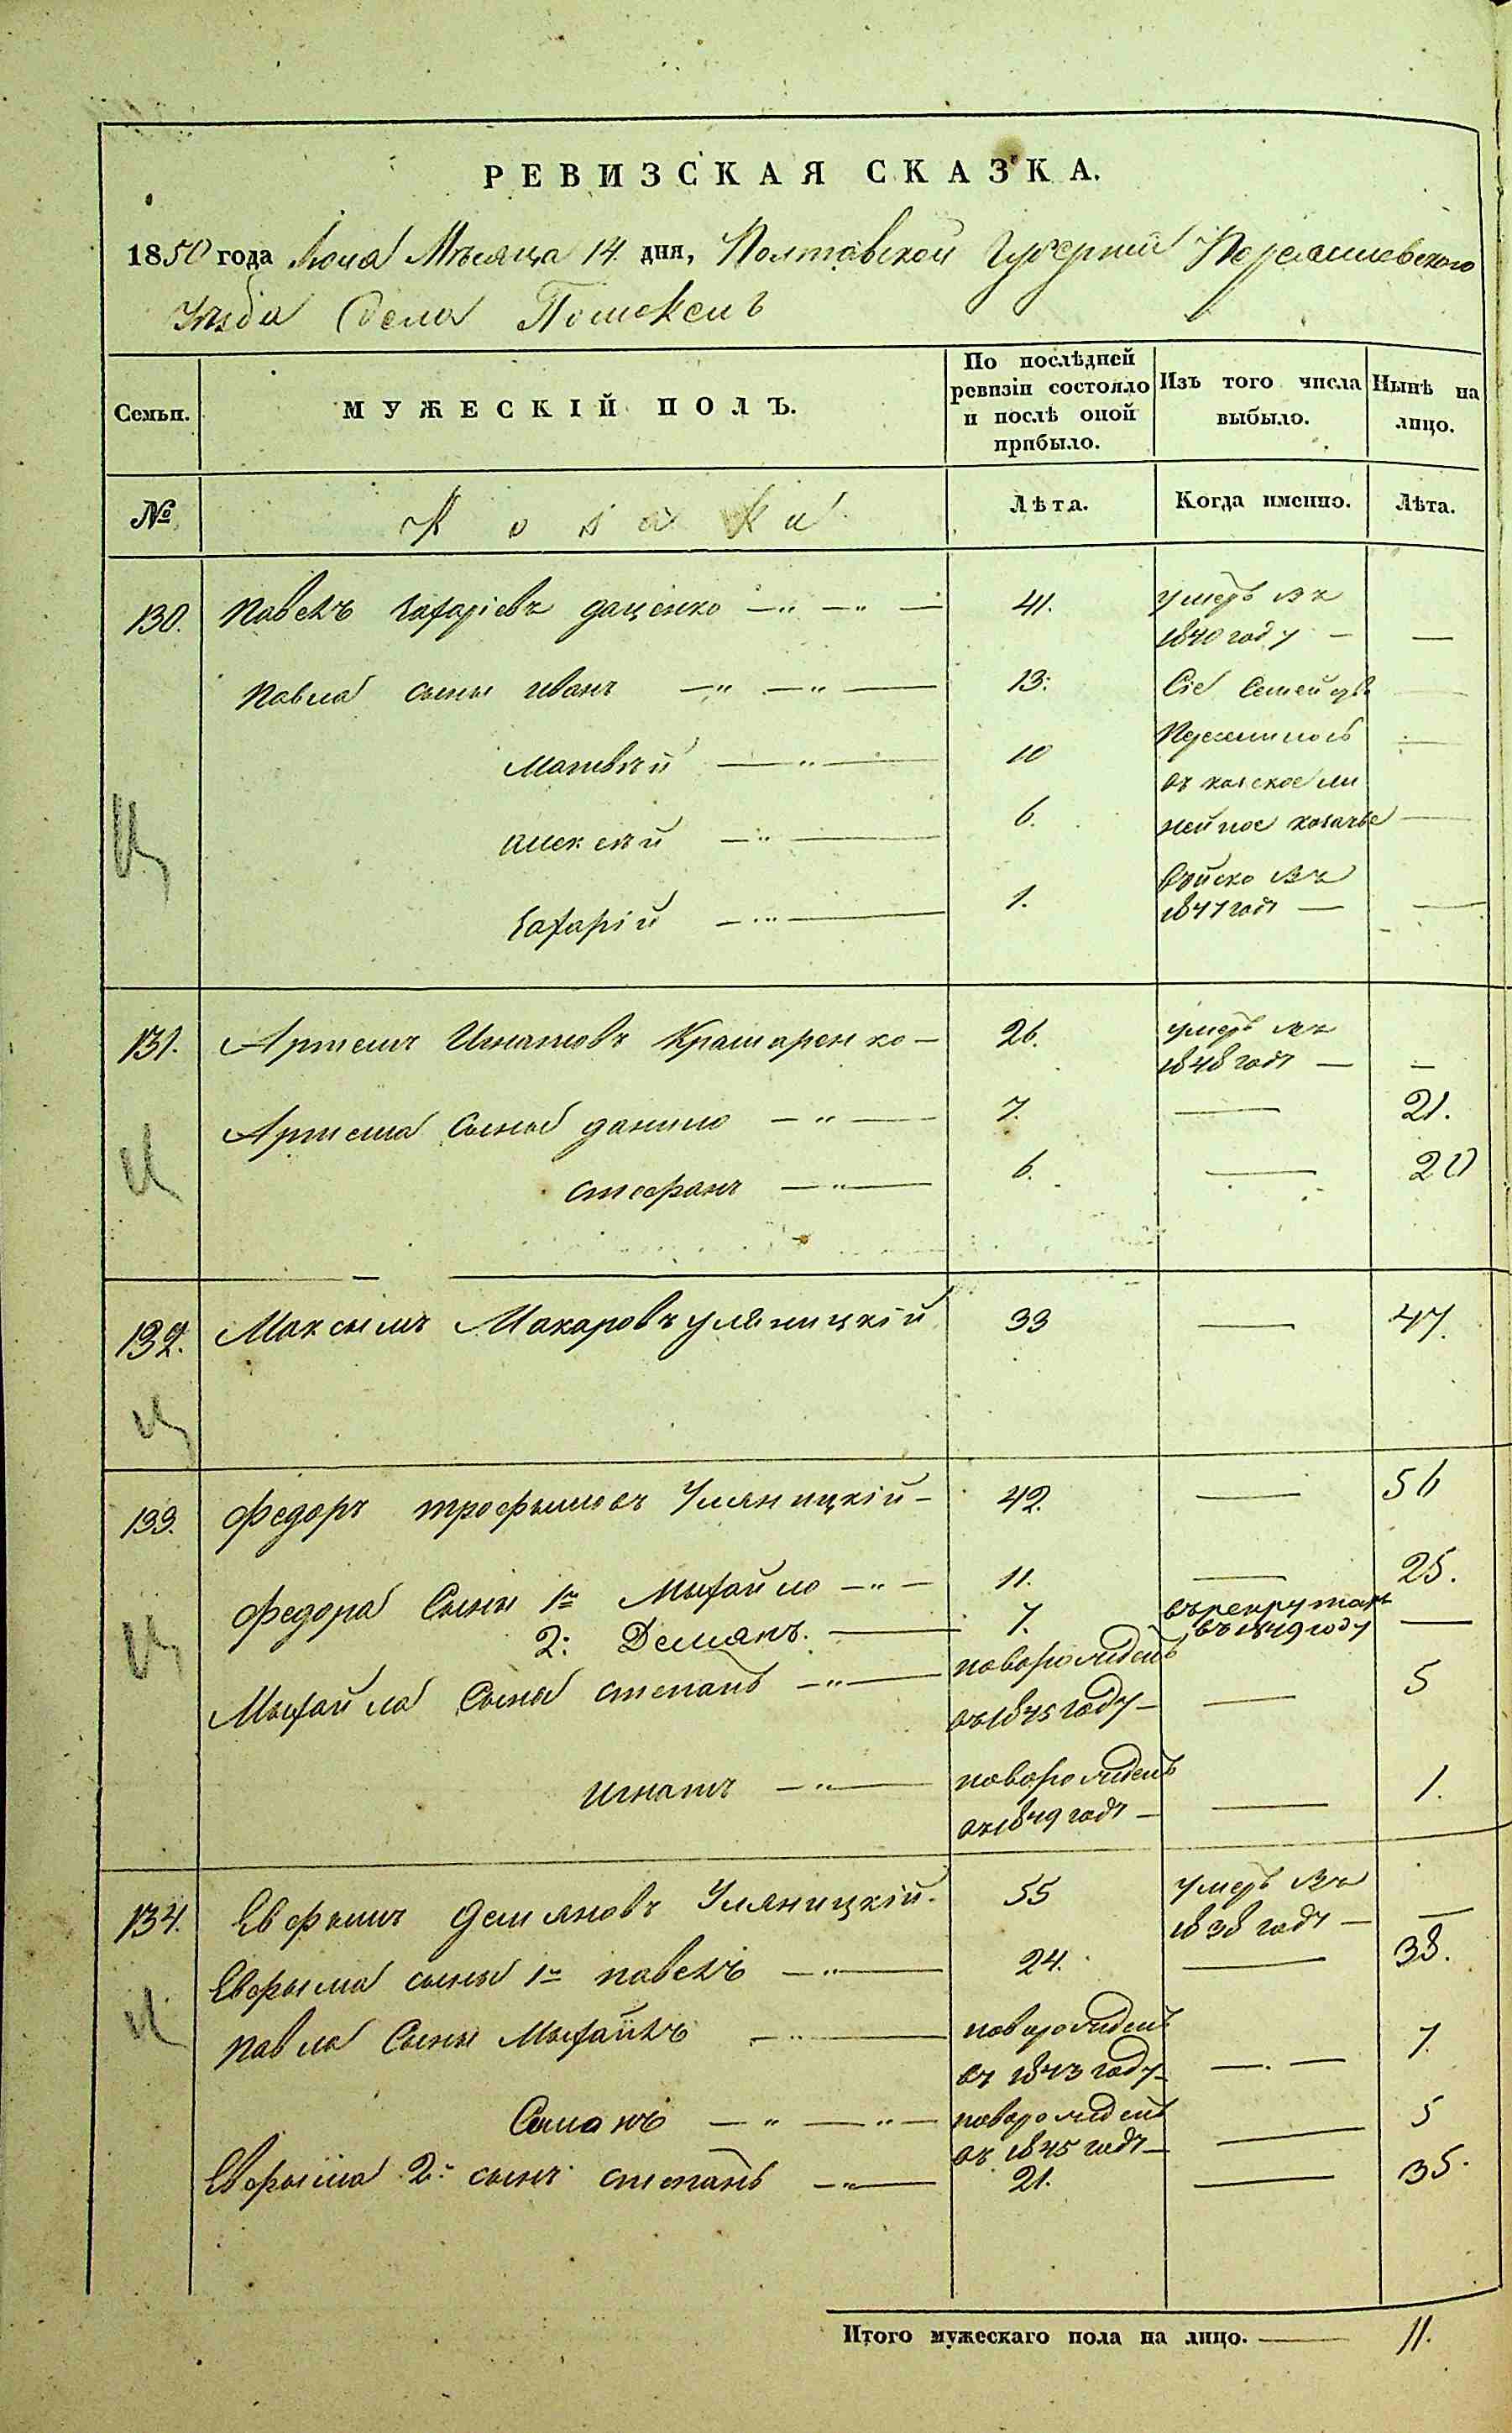 РЕВИЗСКАЯ СКАЗКА.
1850 года Мѣсяца 14 дня, Полтавской Губерніи
Уѣзда Села
Семьи. МУЖЕСКІЙ ПОЛЪ. По послѣдней ревизіи состояло и послѣ оной прибыло. Изъ того числа выбыло. Нынѣ на лицо.
№ Козаки Лѣта. Когда именно. Лѣта.
130. Павелъ Захаріевъ даценко — „ — „ — 41. умеръ въ
1840 году — —
Павла сыны иванъ — „ — „ — 13. Сіе Семейство —
Матвѣй — „ — 10 —
въ ли
алексѣй — „ — 6. нейное козачье —
Захарій — „ — 1. Войско въ
1847 году — —
131. Артемъ Игнатовъ Крамаренко — 26. умеръ въ
1848 году — —
Артема Сыны данило — „ — 7. — 21.
стефанъ — „ — 6. — 20
132. Максымъ Макаровъ уляницкій 33 — 47.
133. Федоръ трофымовъ Уляницкій — 42. — 56
Федора Сыны 1й Мыхайло — „ — 11. — 25.
2: Демянъ. — 7. въ рекрутахъ
въ 1849 году —
Мыхайла Сыны степанъ — „ — новорожденъ
въ 1845 году — — 5
игнатъ — „ — новорожденъ
въ 1849 году — — 1.
134. Евфымъ демяновъ Уляницкій. 55 умеръ въ
1838 году — —
Евфыма сыны 1й павелъ — „ — 24. — 38.
павла Сыны Мыхайлъ — „ — новорожденъ
въ 1843 году — — . — 7
— „ — „ — новорожденъ
въ 1845 году — — 5
Евфыма 2й сынъ степанъ — „ — 21. — 35.
Итого мужескаго пола на лицо. — 11.